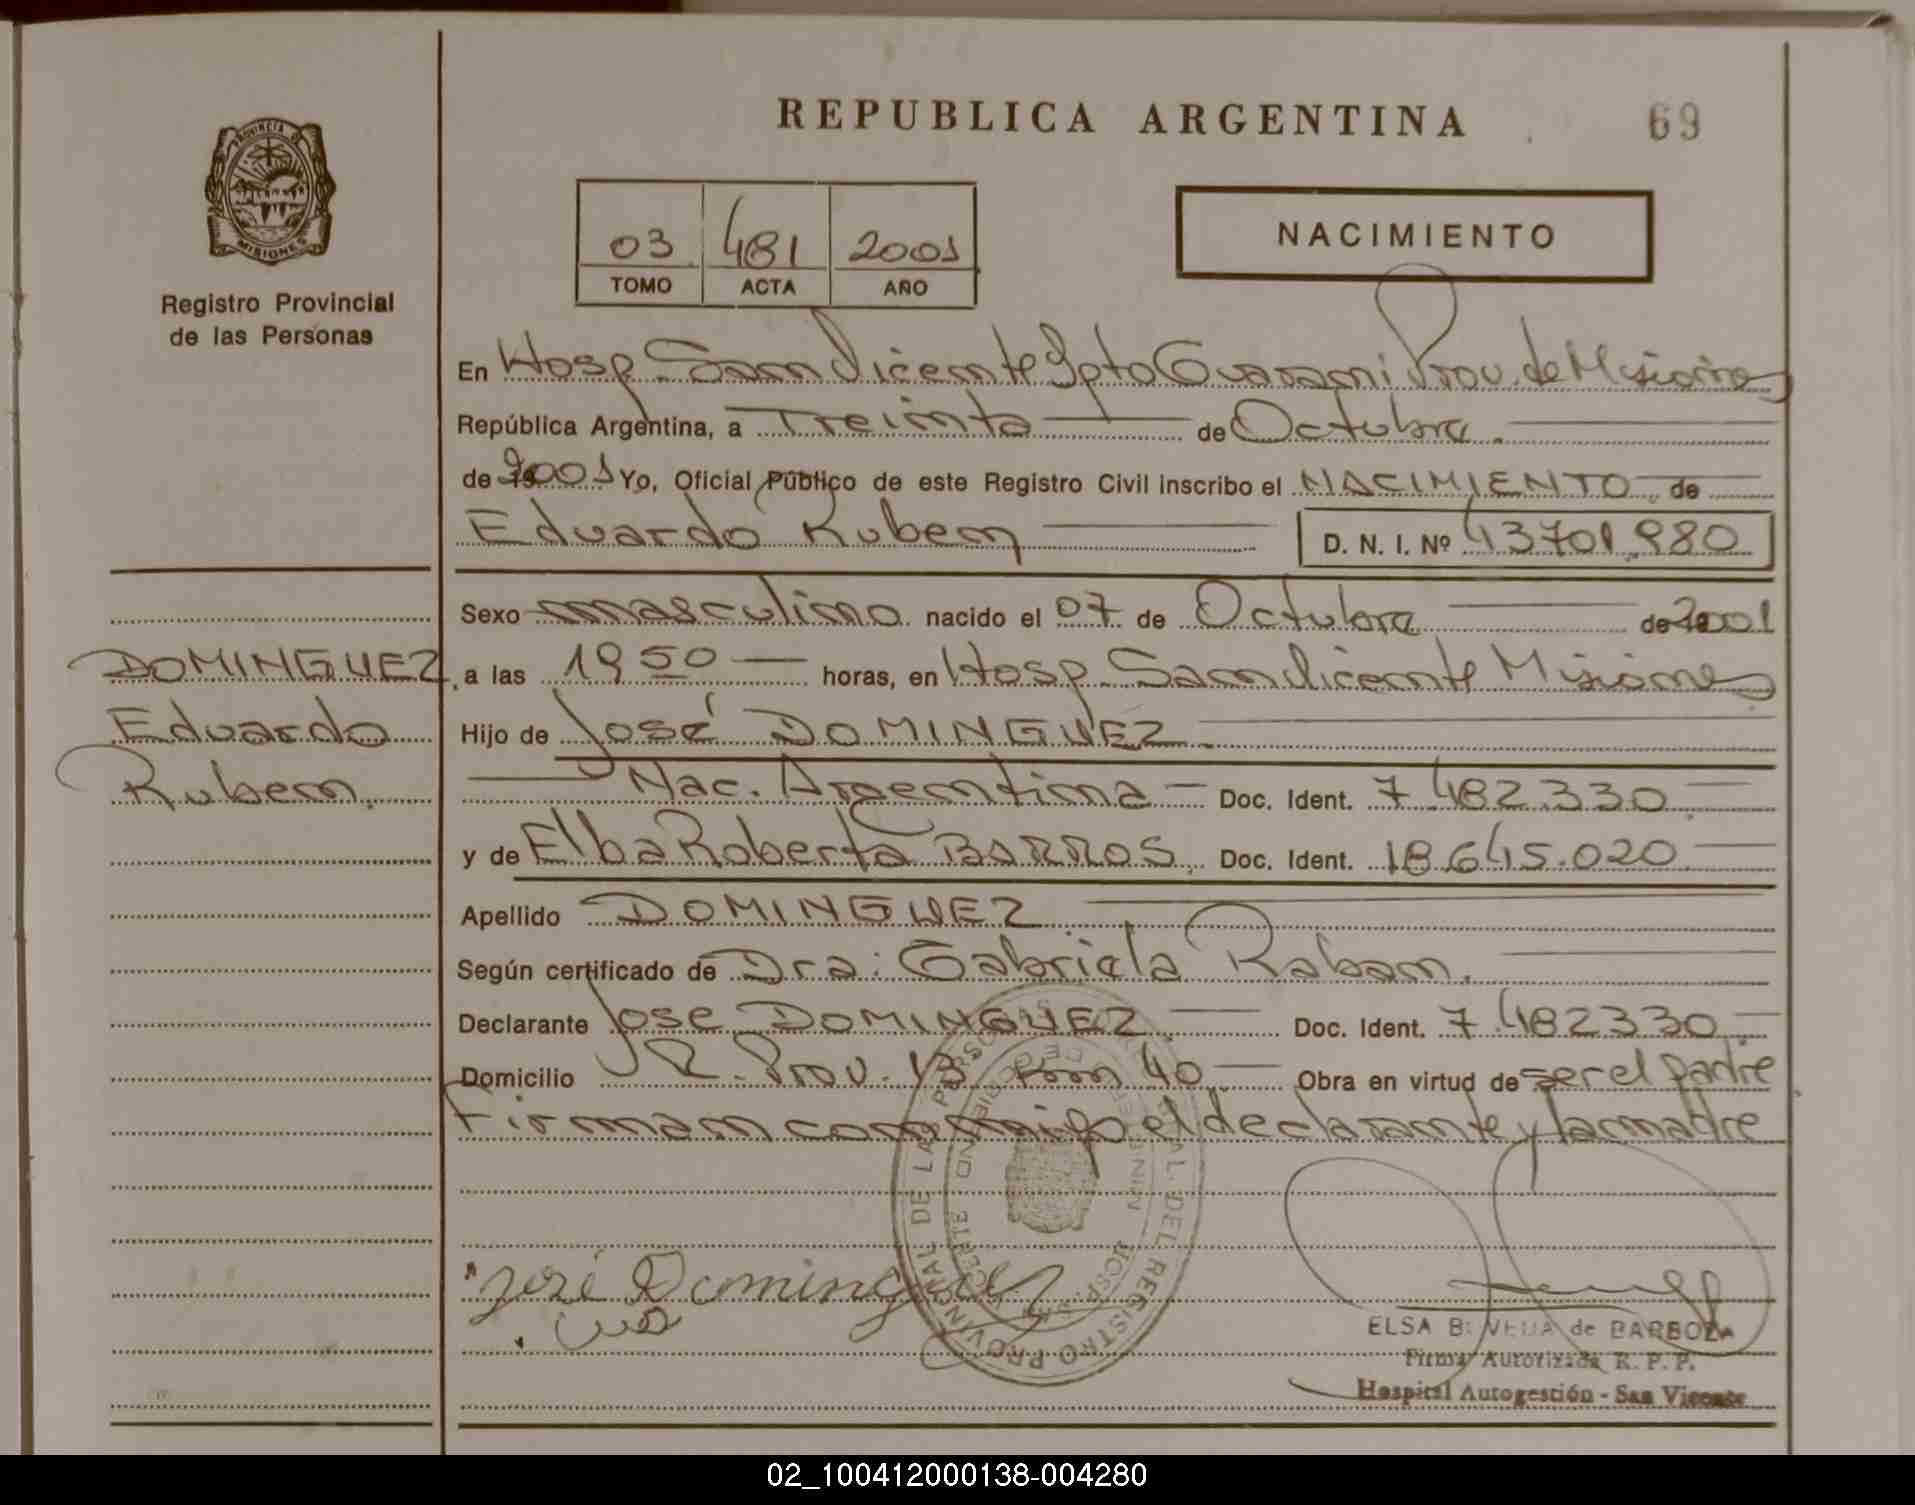 REPUBLICA ARGENTINA
69
PROVINCIA DE
MISIONES
Registro Provincial
de las Personas
03 481 2001
TOMO ACTA AÑO
NACIMIENTO
En Hosp. San Vicente Dpto Guarani Prov. de Misiones
República Argentina, a Treinta de Octubre.
de 2001 Yo, Oficial Público de este Registro Civil inscribo el NACIMIENTO de
Eduardo Ruben D. N. I. Nº 43701.980
Sexo masculino nacido el 07 de Octubre de 2001
a las 19 50 horas, en Hosp San Vicente Misiones
Hijo de José DOMINGUEZ
Nac. Argentina Doc. Ident. 7.482.330
y de Elba Roberta BARROS Doc. Ident. 18.645.020
Apellido DOMINGUEZ
Según certificado de Dra: Gabriela Raban.
Declarante Jose DOMINGUEZ Doc. Ident. 7.482330
Domicilio R. Prov. 13 Km 40 Obra en virtud de ser el padre
Firman conmigo el declarante y la madre
DOMINGUEZ
Eduardo
Ruben.
José Dominguez
ELSA B. de BARBOZA
Firma Autorizada R. P. P.
Hospital Autogestión - San Vicente
02_100412000138-004280